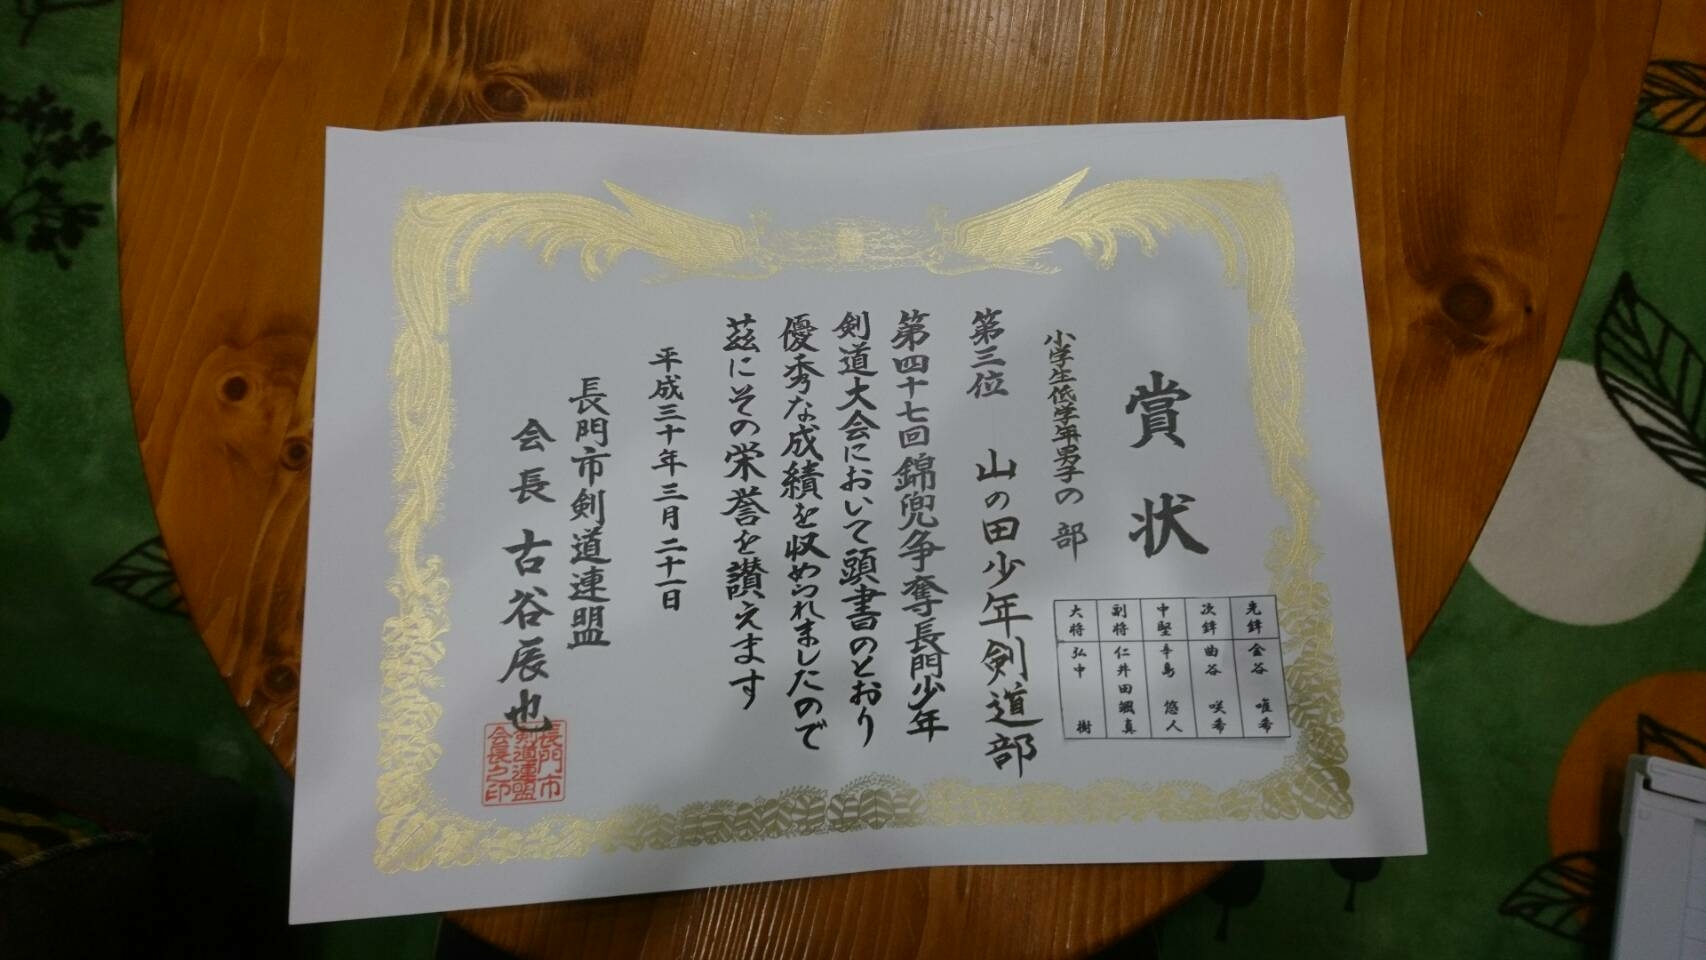 賞状
小学生低学年男子の部
先鋒 金谷 唯希
次鋒 曲谷 咲希
中堅 辛島 悠人
副将 仁井田颯真
大将 弘中 樹
第三位 山の田少年剣道部
第四十七回錦兜争奪長門少年
剣道大会において頭書のとおり
優秀な成績を収められましたので
茲にその栄誉を讃えます
平成三十年三月二十一日
長門市剣道連盟
会長 古谷辰也
長門市
剣道連盟
会長之印